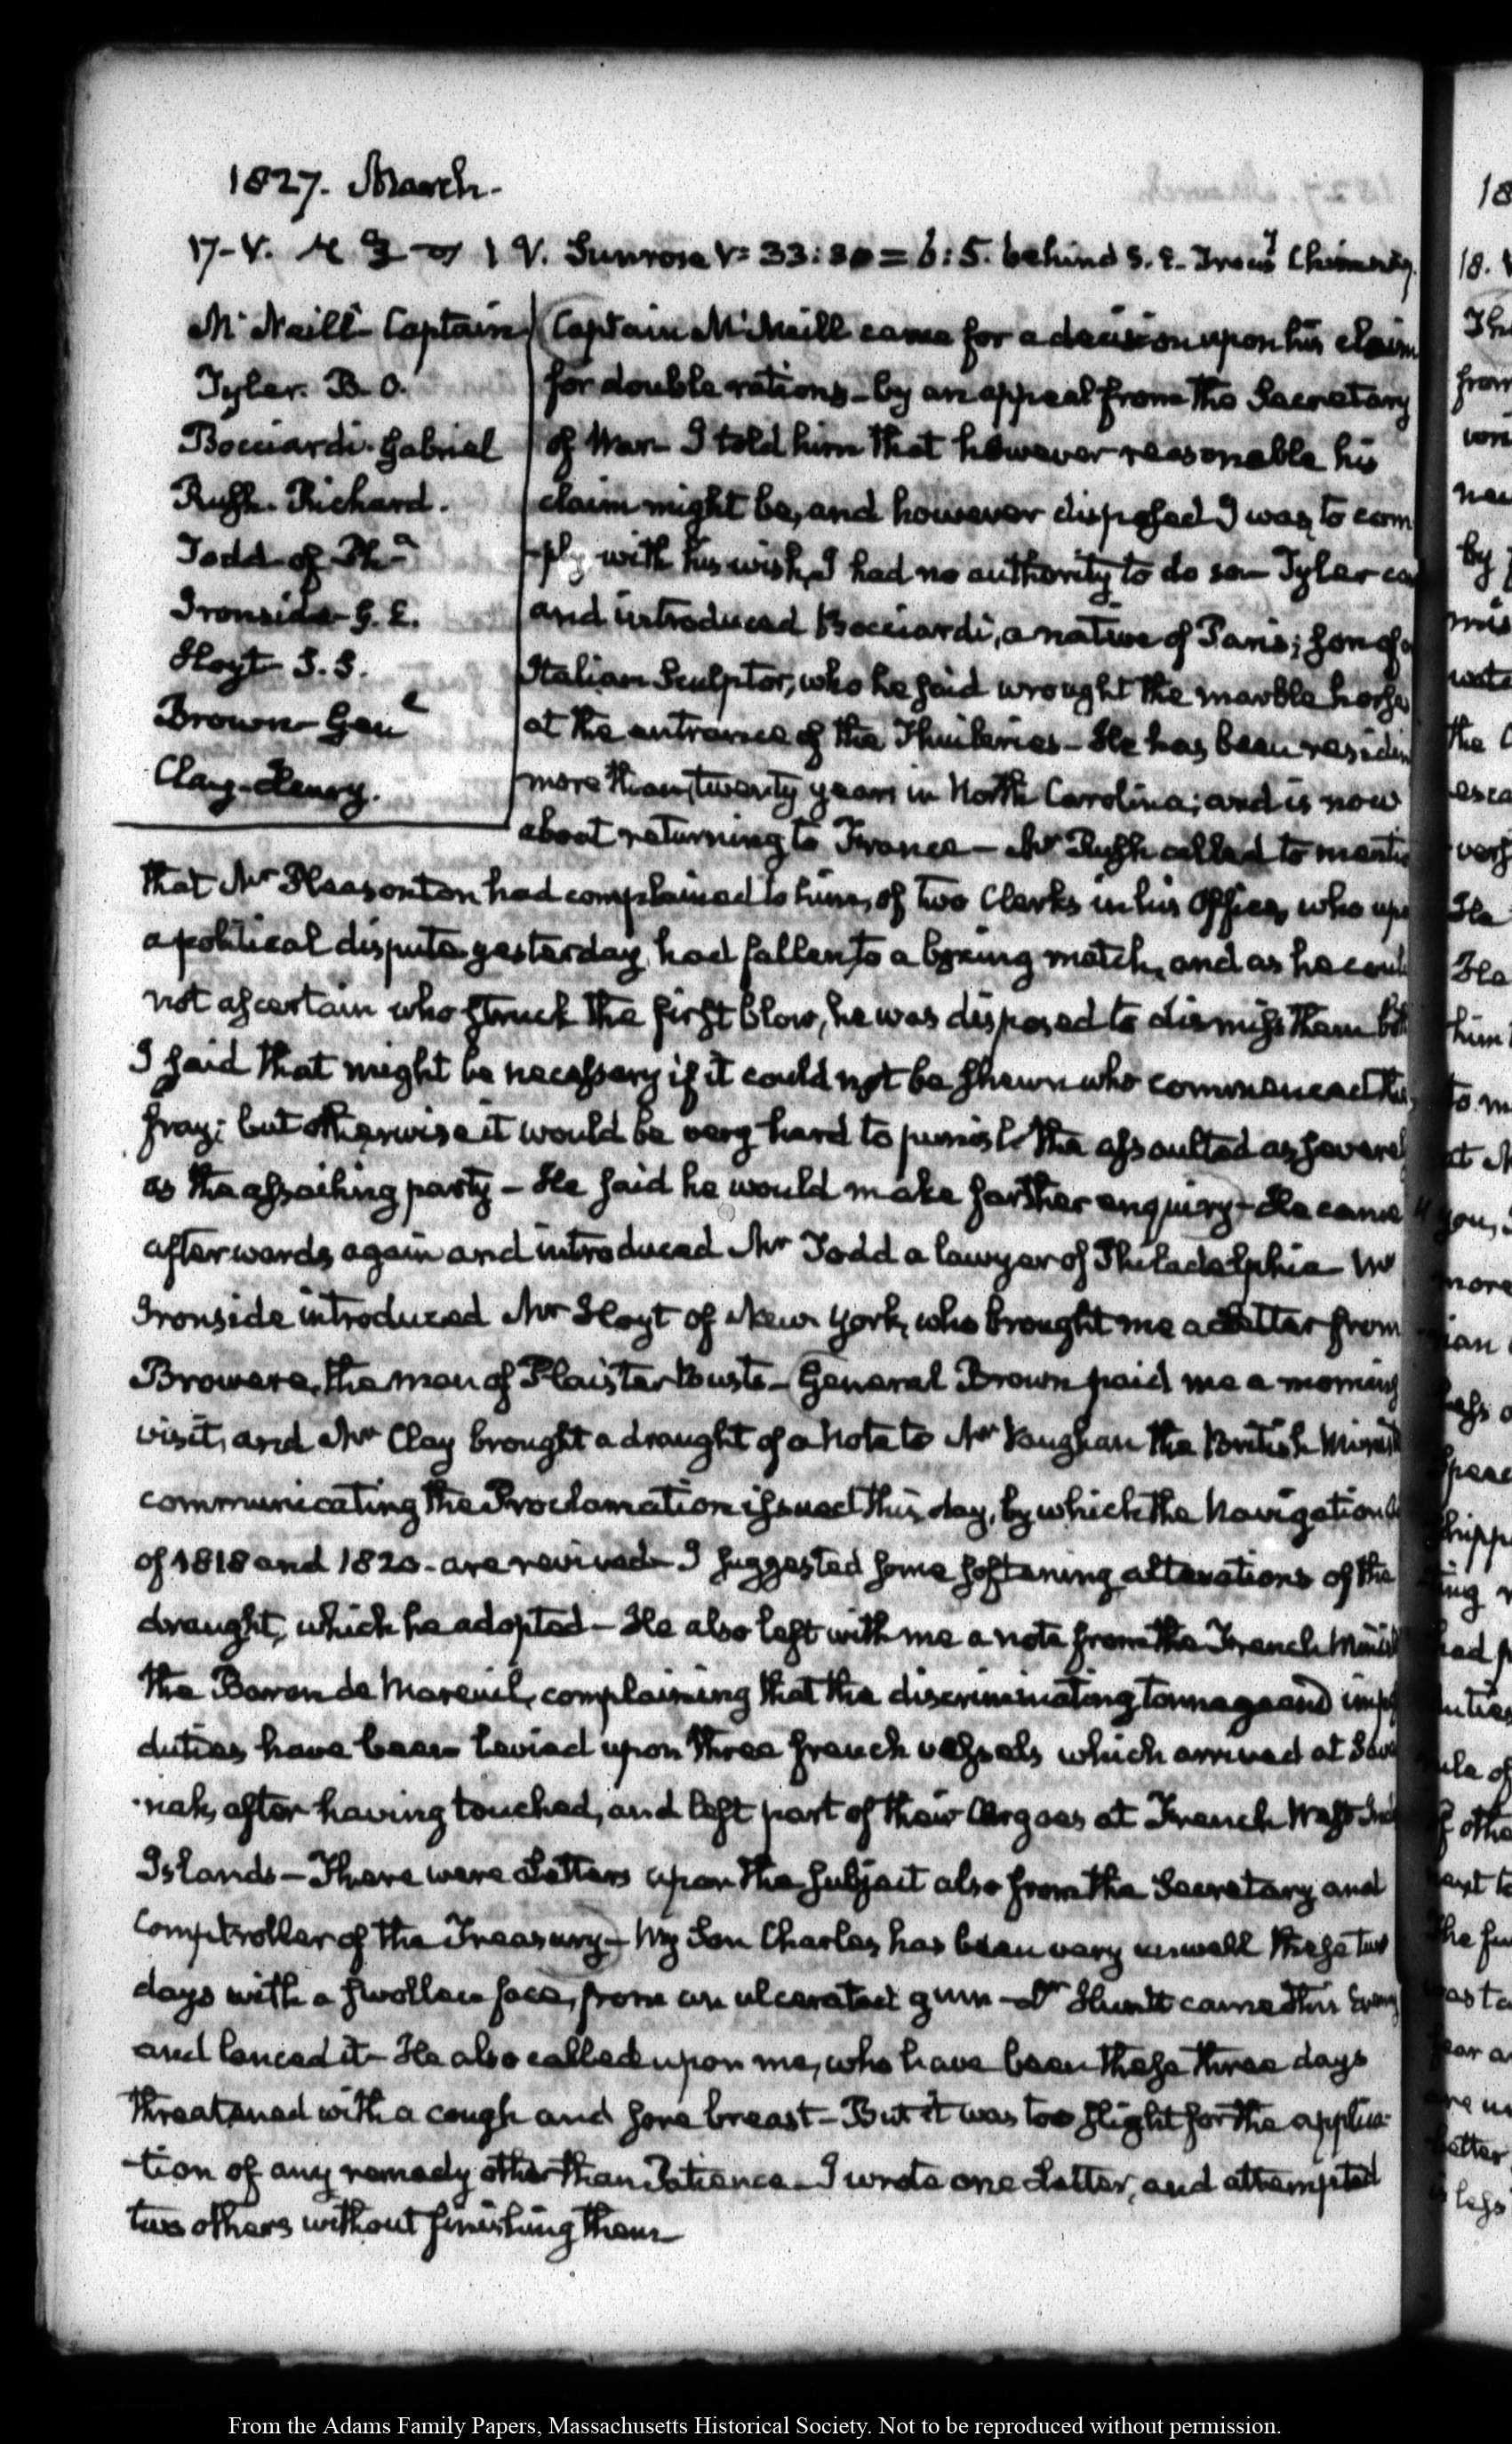 1827. March.
17-V. 1 V. Sunrose V= 33:30 = 6:5. behind S. E. Chimney
McNeill Captain
Tyler. B. O.
Bocciardi. Gabriel
Rush. Richard.
Todd of Pha
Ironside G. E.
Hoyt S. S.
Brown Genl
Clay. Henry.
Captain McNeill came for a decision upon his claim
for double rations—by an appeal from the Secretary
of War—I told him that however reasonable his
claim might be, and however disposed I was to com
-ply with his wish, I had no authority to do so—Tyler
and introduced Bocciardi, a native of Paris; son of
Italian Sculptor, who he said wrought the marble horses
at the entrance of the Thuileries—He has been residing
more than twenty years in North Carolina; and is now
about returning to France—Mr Rush called to mention
that Mr Pleasonton had complained to him, of two Clerks in his Office, who
a political dispute yesterday, had fallen to a boxing match, and as he could
not ascertain who struck the first blow, he was disposed to dismiss them
I said that might be necessary if it could not be shewn who commenced the
fray; but otherwise it would be very hard to punish the assaulted as severely
as the assailing party—He said he would make farther enquiry—He came
afterwards again and introduced Mr Todd a lawyer of Philadelphia Mr
Ironside introduced Mr Hoyt of New York, who brought me a Letter from
Browere, the man of Plaister Busts—General Brown paid me a morning
visit, and Mr Clay brought a draught of a Note to Mr Vaughan the British
communicating the Proclamation issued this day, by which the Navigation
of 1818 and 1820. are revived—I suggested some softening alterations of the
draught, which he adopted—He also left with me a note from the French
the Baron de Mareuil, complaining that the discriminating tonnage and
duties have been levied upon three french vessels which arrived at Savan
-nah, after having touched, and left part of their Cargoes at French West
Islands—There were Letters upon the subject also from the Secretary and
Comptroller of the Treasury—My Son Charles has been very unwell these two
days with a swollen face, from an ulcerated gum—Dr Huntt came this
and lanced it—He also called upon me, who have been these three days
threatened with a cough and sore breast—But it was too slight for the applica-
-tion of any remedy other than Patience—I wrote one Letter, and attempted
two others without finishing them—
From the Adams Family Papers, Massachusetts Historical Society. Not to be reproduced without permission.